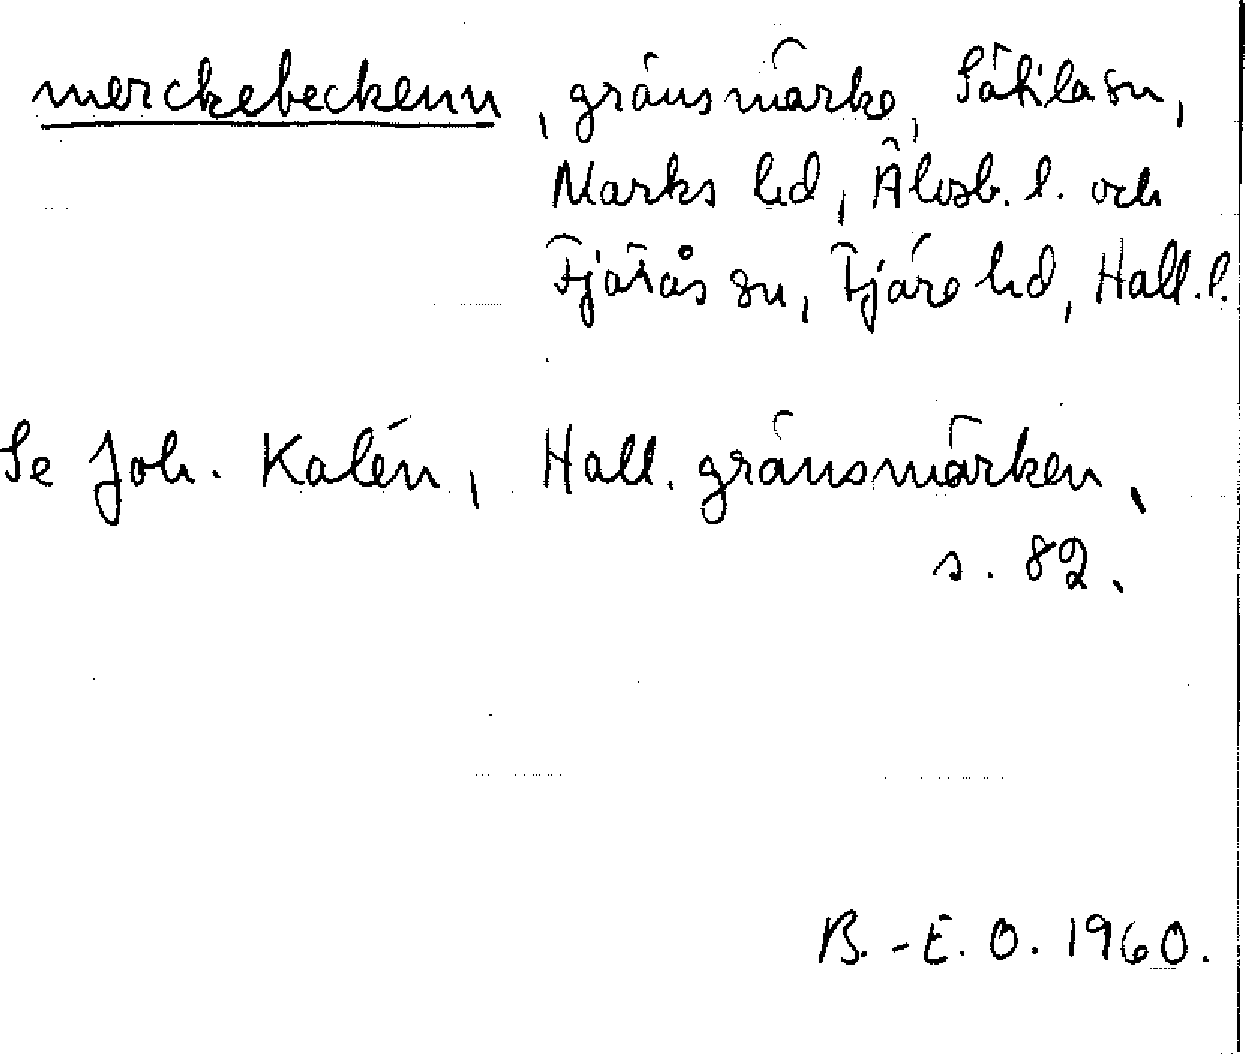 merckebeckenn, gränsmärke, Sätila sn,
Marks hd, Älvsb. l. och
Fjärås sn, Fjäre hd, Hall. l.
Se Joh. Kalén, Hall. gränsmärken,
s. 82.
B.-E. O. 1960.